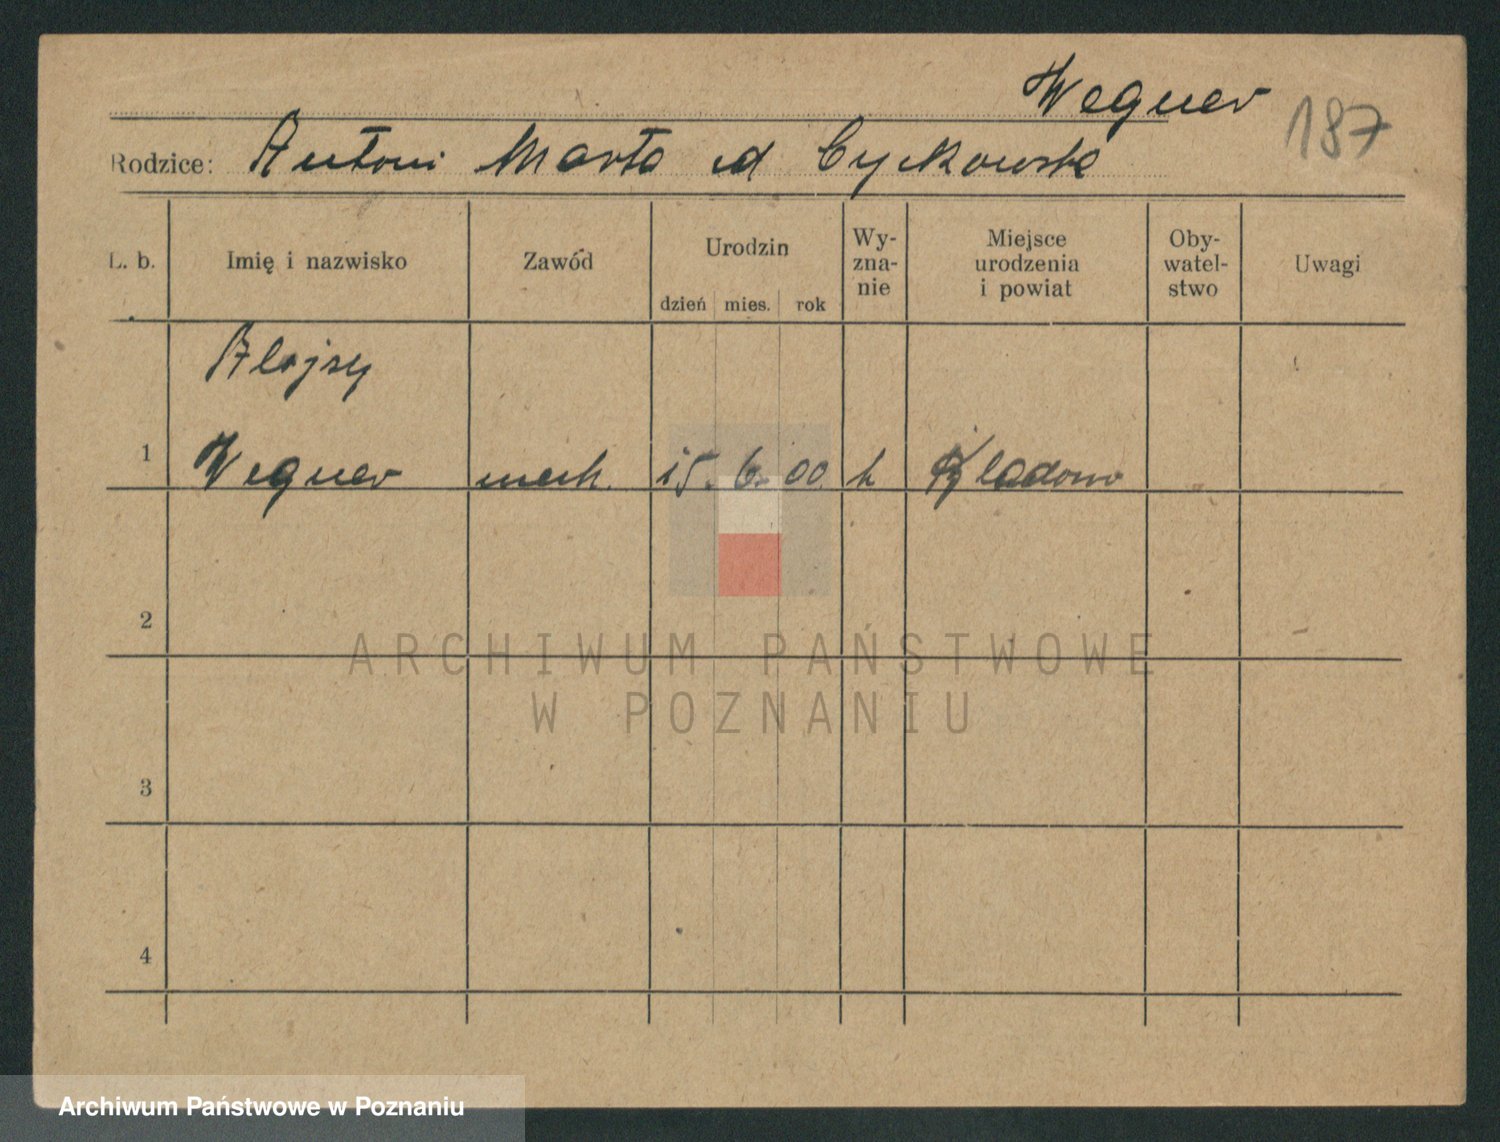 Wegner
187
Rodzice: Antoni Marta d Cyckowska
L. b. Imię i nazwisko Zawód Urodzin dzień mies. rok Wy-zna-nie Miejsce urodzenia i powiat Oby-watel-stwo Uwagi
Alojzy
1 Wegner mech. 15. 6. 00 k Kladowo
2
3
4
ARCHIWUM PAŃSTWOWE
W POZNANIU
Archiwum Państwowe w Poznaniu